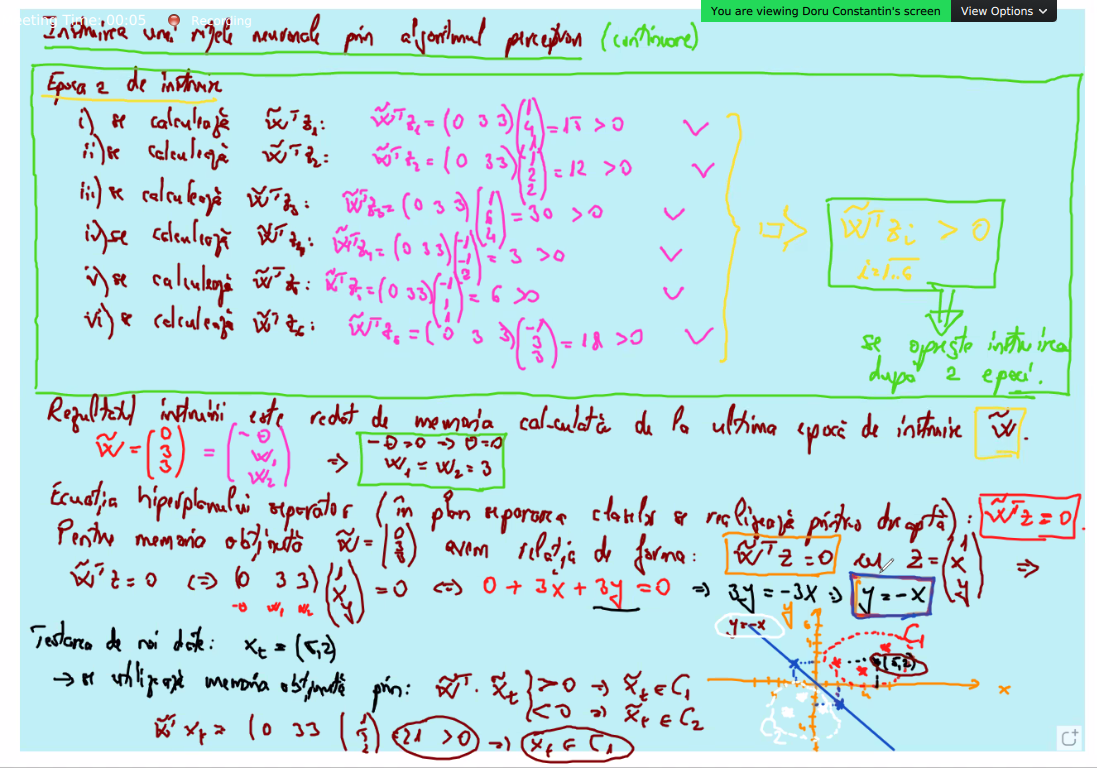 Meeting Time: 00:05 Recording
You are viewing Doru Constantin's screen View Options
Instruirea unei rețele neuronale prin algoritmul perceptron (continuare)
Epoca 2 de instruire
i) se calculează w̃ᵀz₁: w̃ᵀz₁ = (0 3 3)(1 4 1) = 15 > 0 ✓
ii) se calculează w̃ᵀz₂: w̃ᵀz₂ = (0 3 3)(1 2 2) = 12 > 0 ✓
iii) se calculează w̃ᵀz₃: w̃ᵀz₃ = (0 3 3)(1 6 4) = 30 > 0 ✓
iv) se calculează w̃ᵀz₄: w̃ᵀz₄ = (0 3 3)(-1 -1 2) = 3 > 0 ✓
v) se calculează w̃ᵀz₅: w̃ᵀz₅ = (0 3 3)(-1 1 1) = 6 > 0 ✓
vi) se calculează w̃ᵀz₆: w̃ᵀz₆ = (0 3 3)(-1 3 3) = 18 > 0 ✓
⇒ w̃ᵀzᵢ > 0
i=1..6
se oprește instruirea
după 2 epoci.
Rezultatul instruirii este redat de memoria calculată de la ultima epocă de instruire w̃.
w̃ = (0 3 3) = (-θ w₁ w₂) ⇒ -θ=0 → θ=0
w₁ = w₂ = 3
Ecuația hiperplanului separator (în plan separarea claselor se realizează printr-o dreaptă): w̃ᵀz = 0.
Pentru memoria obținută w̃ = (0 3 3) avem relația de forma: w̃ᵀz = 0 cu z = (1 x y) ⇒
w̃ᵀz = 0 ⇔ (0 3 3)(1 x y) = 0 ⇔ 0 + 3x + 3y = 0 ⇒ 3y = -3x ⇒ y = -x
-θ w₁ w₂
Testarea de noi date: xₜ = (5,2)
→ se utilizează memoria obținută prin: w̃ᵀ · x̃ₜ > 0 ⇒ x̃ₜ ∈ C₁
< 0 ⇒ x̃ₜ ∈ C₂
w̃ᵀ xₜ = (0 3 3)(1 5 2) = 21 > 0 ⇒ x̃ₜ ∈ C₁
y=-x
y
C₁
(5,2)
x
C₂